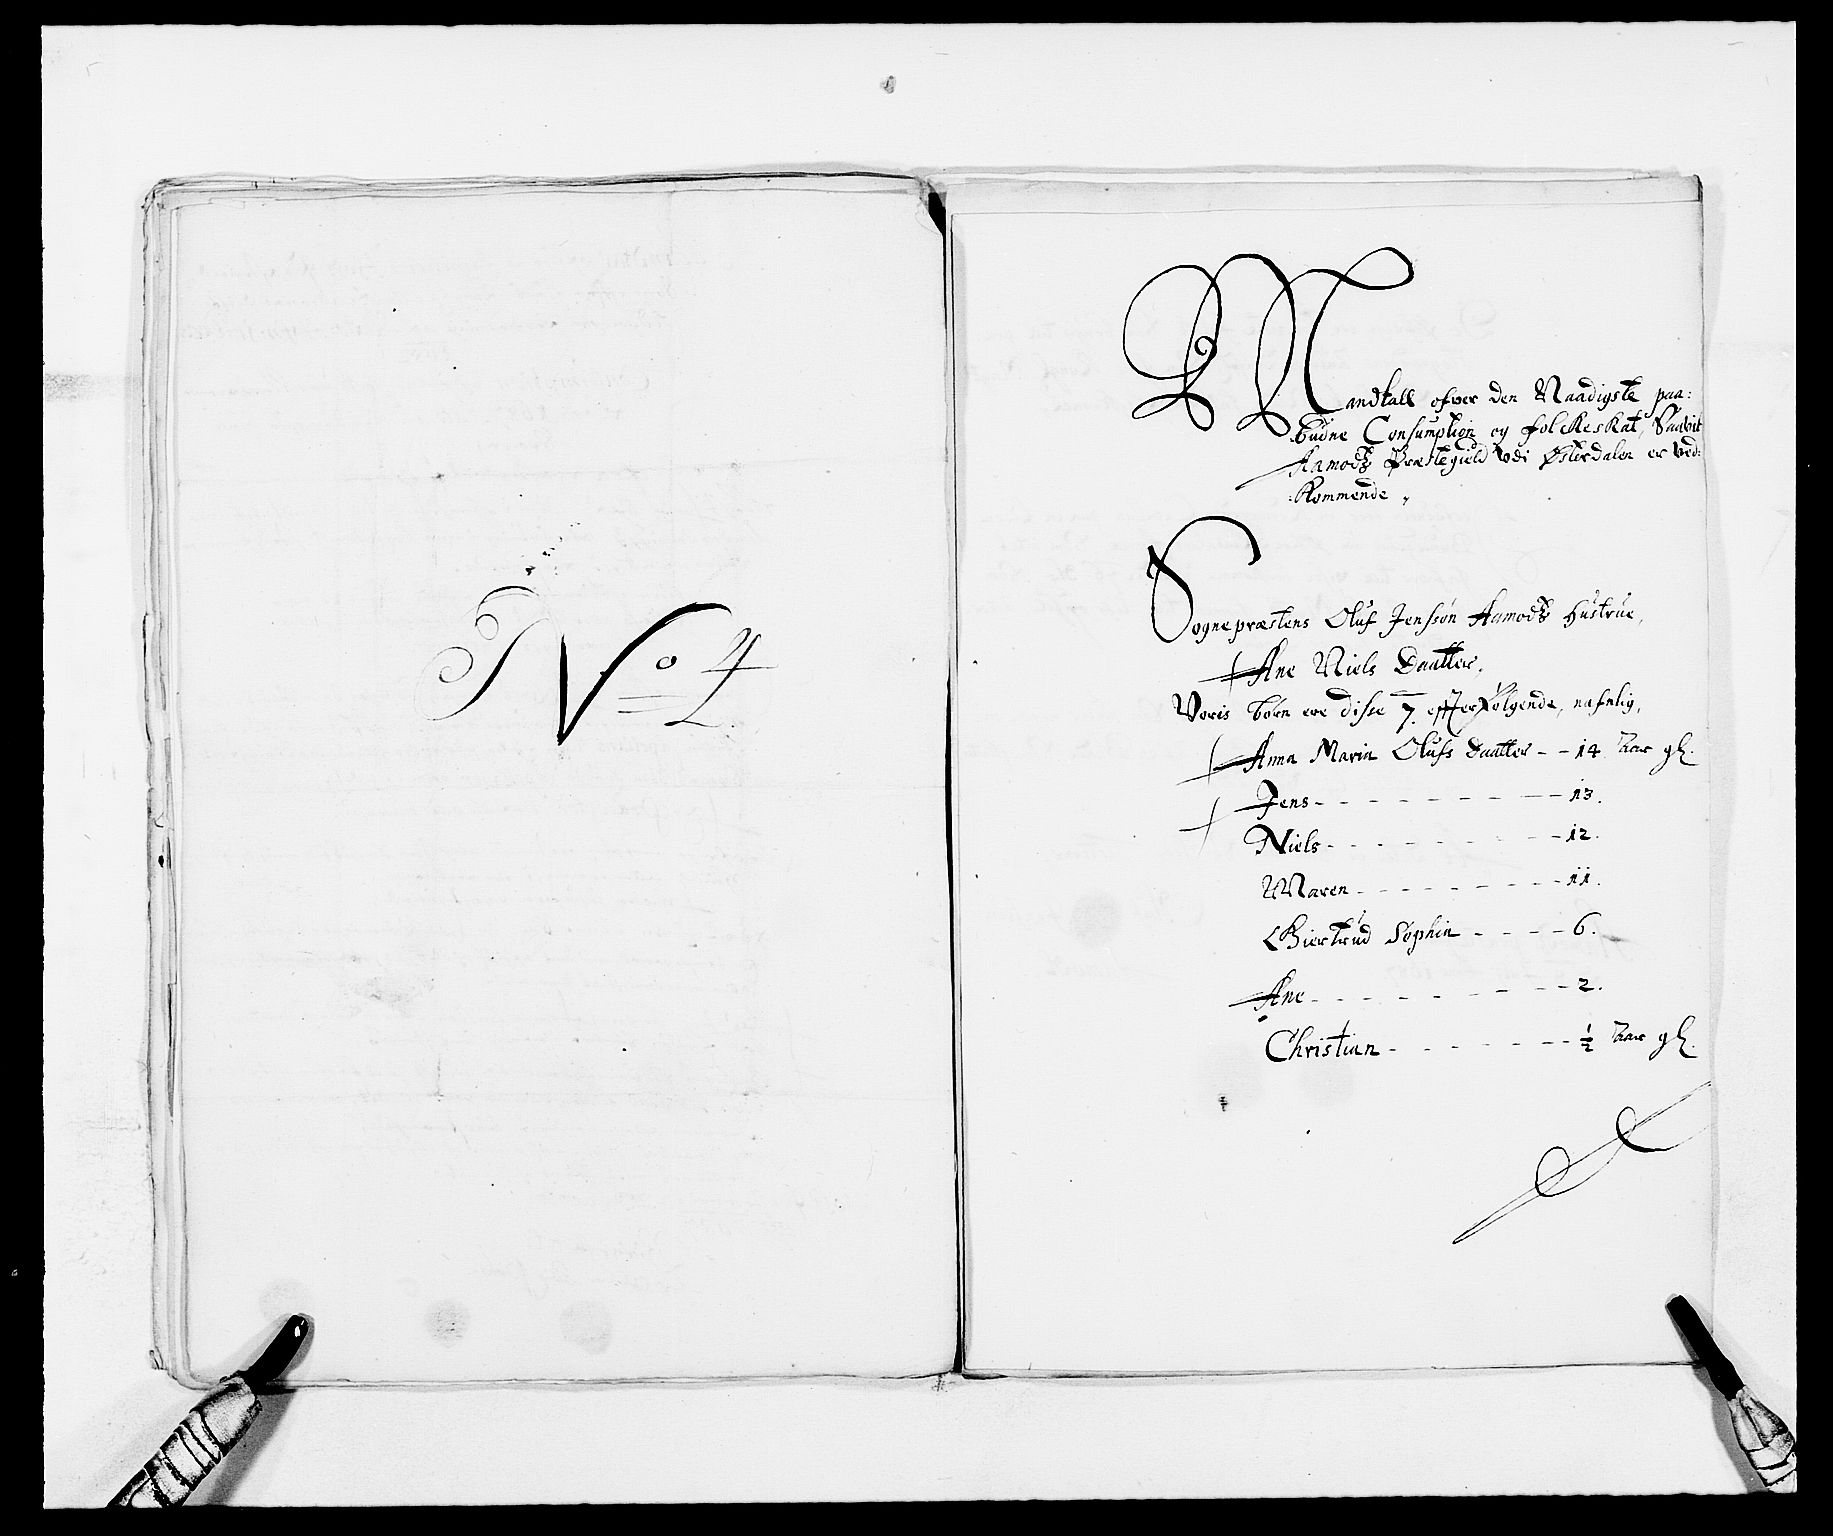 No 4
Mandtall ofver den Naadigste paa:
budne Consumption og folckeskat, Saavit
Aamodtz Præstegield udi Østerdalen er ved:
kommende,
Sognepræstens Oluf Jenssøn Aamodtz Hustrue,
Ane Niels Daatter,
Voris børn ere disse 7. effterfølgende, nafnlig,
Anna Maria Olufs Daatter - - 14 Aar gl.
Jens - - - - - - - 13.
Niels - - - - - - - 12.
Maren - - - - - - - 11.
Giertrud Sophia - - - - 6.
Ane - - - - - - - 2.
Christian - - - - - - - ½ Aar gl.